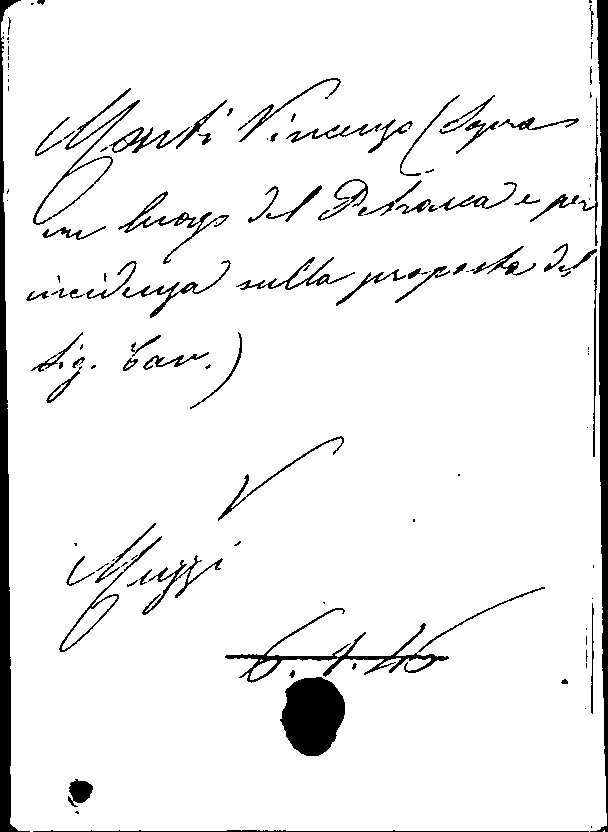 Monti Vincenzo (Sopra
un luogo del Petrarca e per
incidenza sulla proposta del
Sig. Cav.)
V
Muzzi
6.1.46